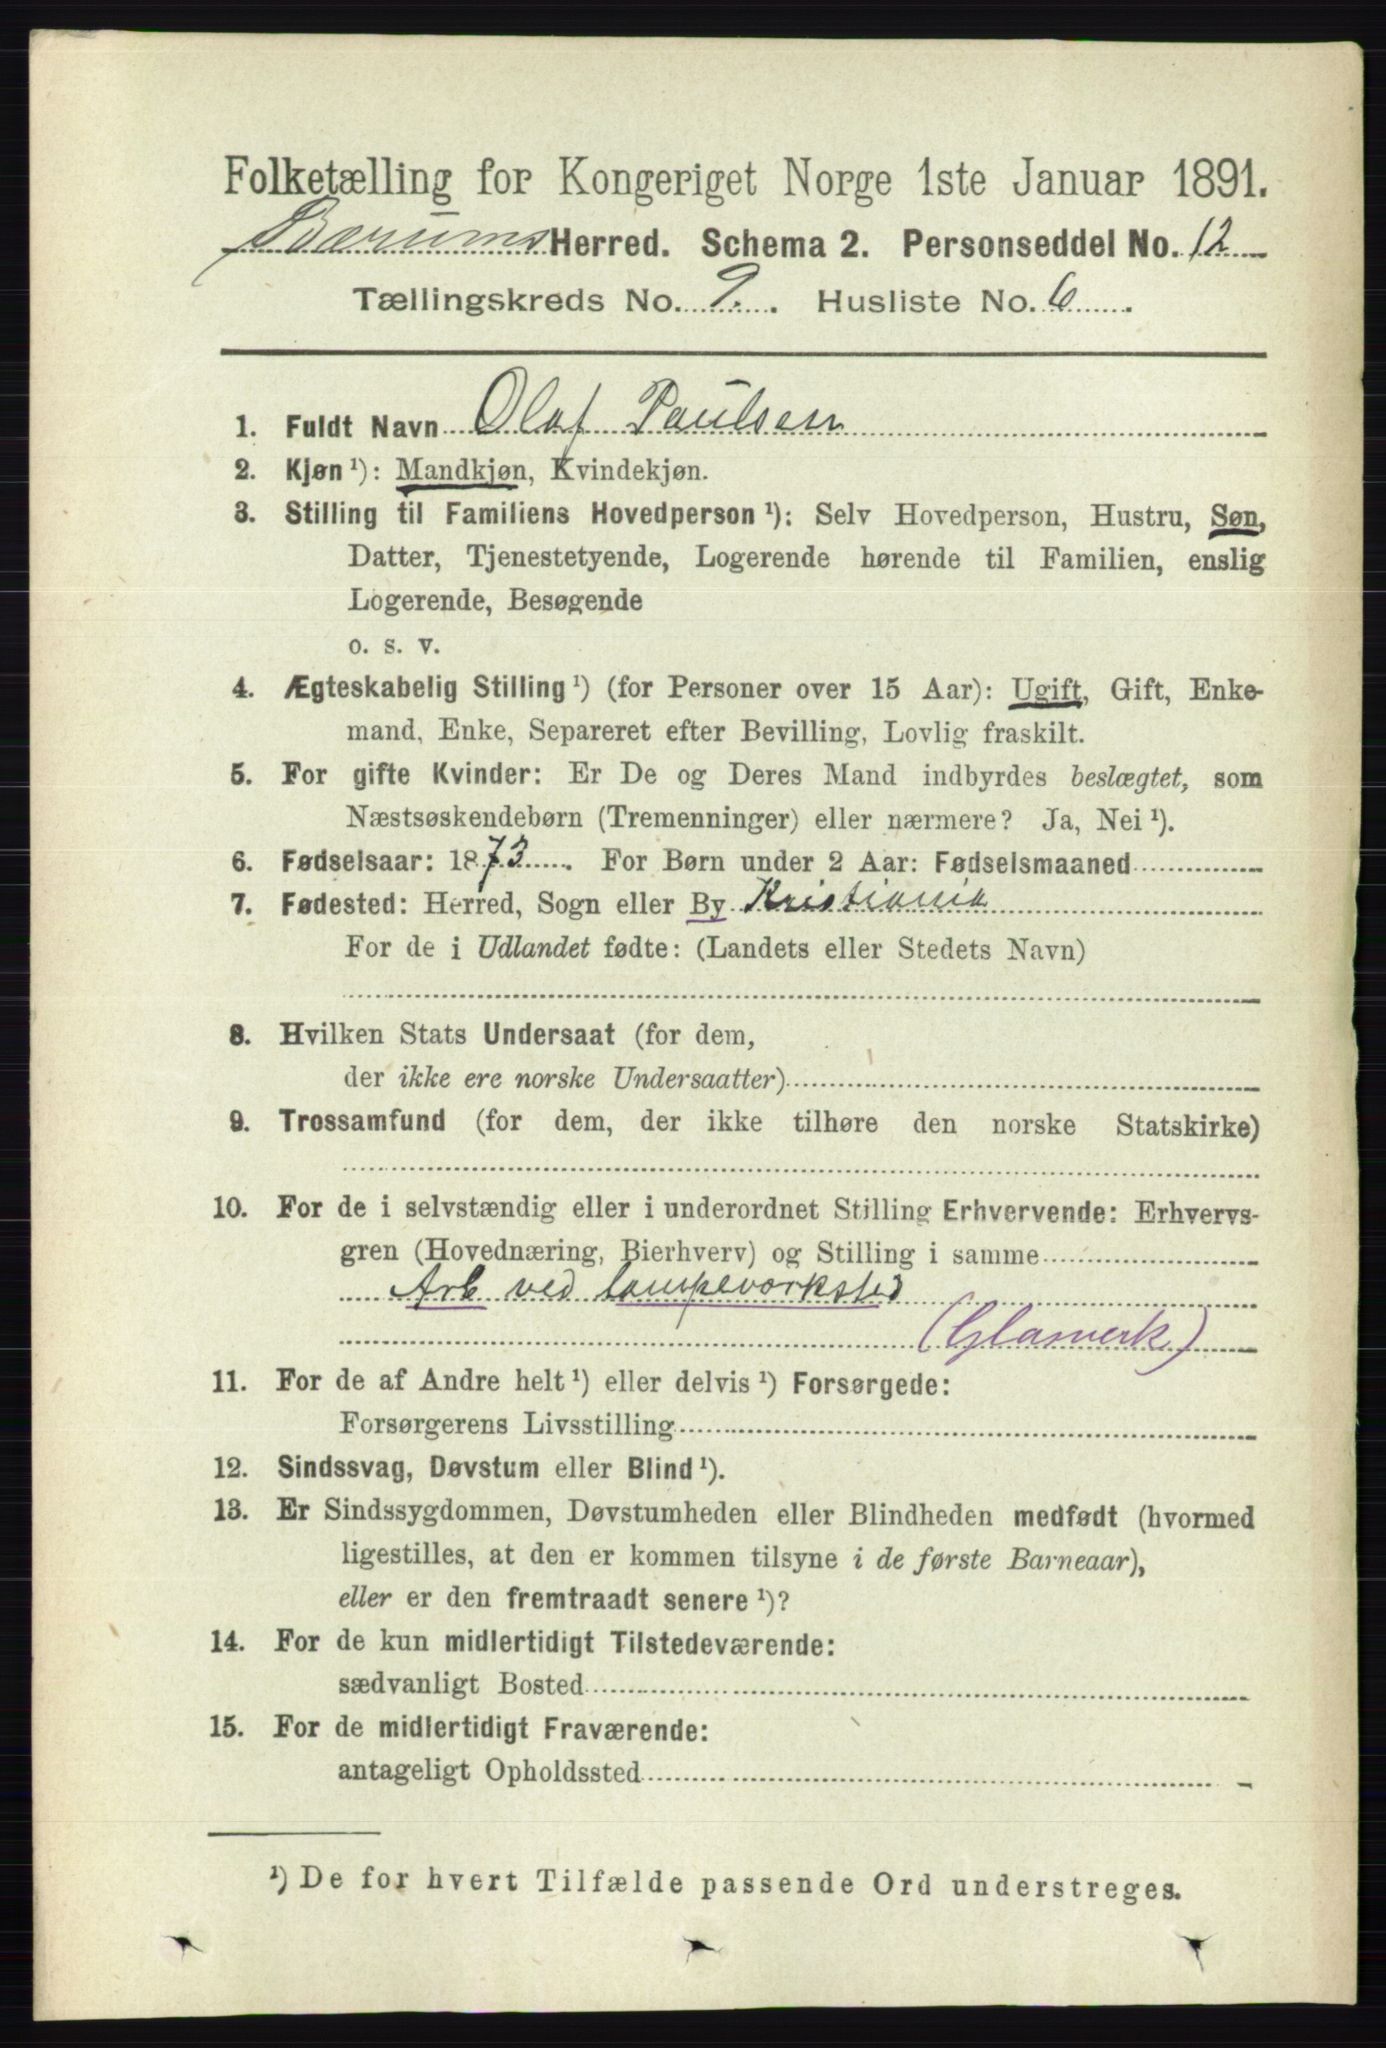 Folketælling for Kongeriget Norge 1ste Januar 1891.
Bærums Herred. Schema 2. Personseddel No. 12
Tællingskreds No. 9. Husliste No. 6.
1. Fuldt Navn Olaf Paulsen
2. Kjøn ¹): Mandkjøn, Kvindekjøn.
3. Stilling til Familiens Hovedperson ¹): Selv Hovedperson, Hustru, Søn,
Datter, Tjenestetyende, Logerende hørende til Familien, enslig
Logerende, Besøgende
o. s. v.
4. Ægteskabelig Stilling ¹) (for Personer over 15 Aar): Ugift, Gift, Enke-
mand, Enke, Separeret efter Bevilling, Lovlig fraskilt.
5. For gifte Kvinder: Er De og Deres Mand indbyrdes beslægtet, som
Næstsøskendebørn (Tremenninger) eller nærmere? Ja, Nei ¹).
6. Fødselsaar: 1873. For Børn under 2 Aar: Fødselsmaaned
7. Fødested: Herred, Sogn eller By Kristiania
For de i Udlandet fødte: (Landets eller Stedets Navn)
8. Hvilken Stats Undersaat (for dem,
der ikke ere norske Undersaatter)
9. Trossamfund (for dem, der ikke tilhøre den norske Statskirke)
10. For de i selvstændig eller i underordnet Stilling Erhvervende: Erhvervs-
gren (Hovednæring, Bierhverv) og Stilling i samme
Arb ved lampeværksted
(Glasverk)
11. For de af Andre helt ¹) eller delvis ¹) Forsørgede:
Forsørgerens Livsstilling
12. Sindssvag, Døvstum eller Blind ¹).
13. Er Sindssygdommen, Døvstumheden eller Blindheden medfødt (hvormed
ligestilles, at den er kommen tilsyne i de første Barneaar),
eller er den fremtraadt senere ¹)?
14. For de kun midlertidigt Tilstedeværende:
sædvanligt Bosted
15. For de midlertidigt Fraværende:
antageligt Opholdssted
¹) De for hvert Tilfælde passende Ord understreges.